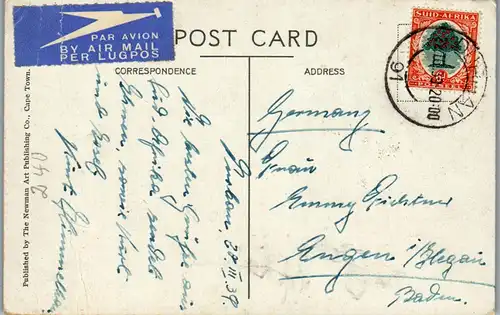 PAR AVION
BY AIR MAIL
PER LUGPOS
POST CARD
SUID-AFRIKA
CORRESPONDENCE
ADDRESS
20:00
91
Durban, 28.III.39.
Die besten Grüße aus
Süd Afrika sendet
Ihnen, sowie
und
Germany
Frau
Emmy
Engen i/Hegau
Baden.
Published by The Newman Art Publishing Co., Cape Town.